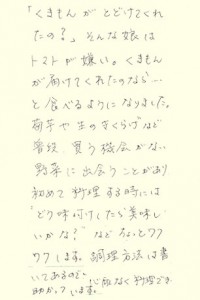 「くまもんがとどけてくれ
たの？」そんな娘は
トマトが嫌い。くまもん
が届けてくれたのなら…
と食べるようになりました。
菊芋や生のきくらげなど
普段、買う機会がない
野菜に出会うことがあり
初めて料理する時には
"どう味付けしたら美味し
いかな？"などちょっとワク
ワクします。調理方法は書
いてあるので、心配なく料理でき
助かっています。